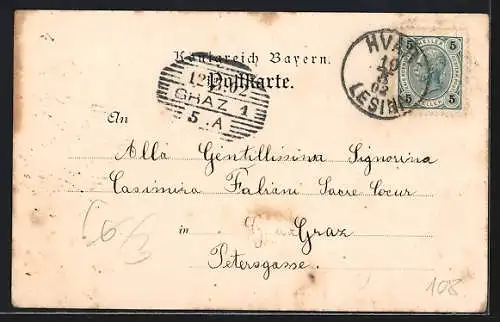 Königreich Bayern.
Postkarte.
HVAR
10
02
LESINA
5 HELLER 5
5 5
12
GRAZ 1
5. A
An
Alla Gentilissima Signorina
Casimira Fabiani Sacre Coeur
in Graz
Petersgasse.
108